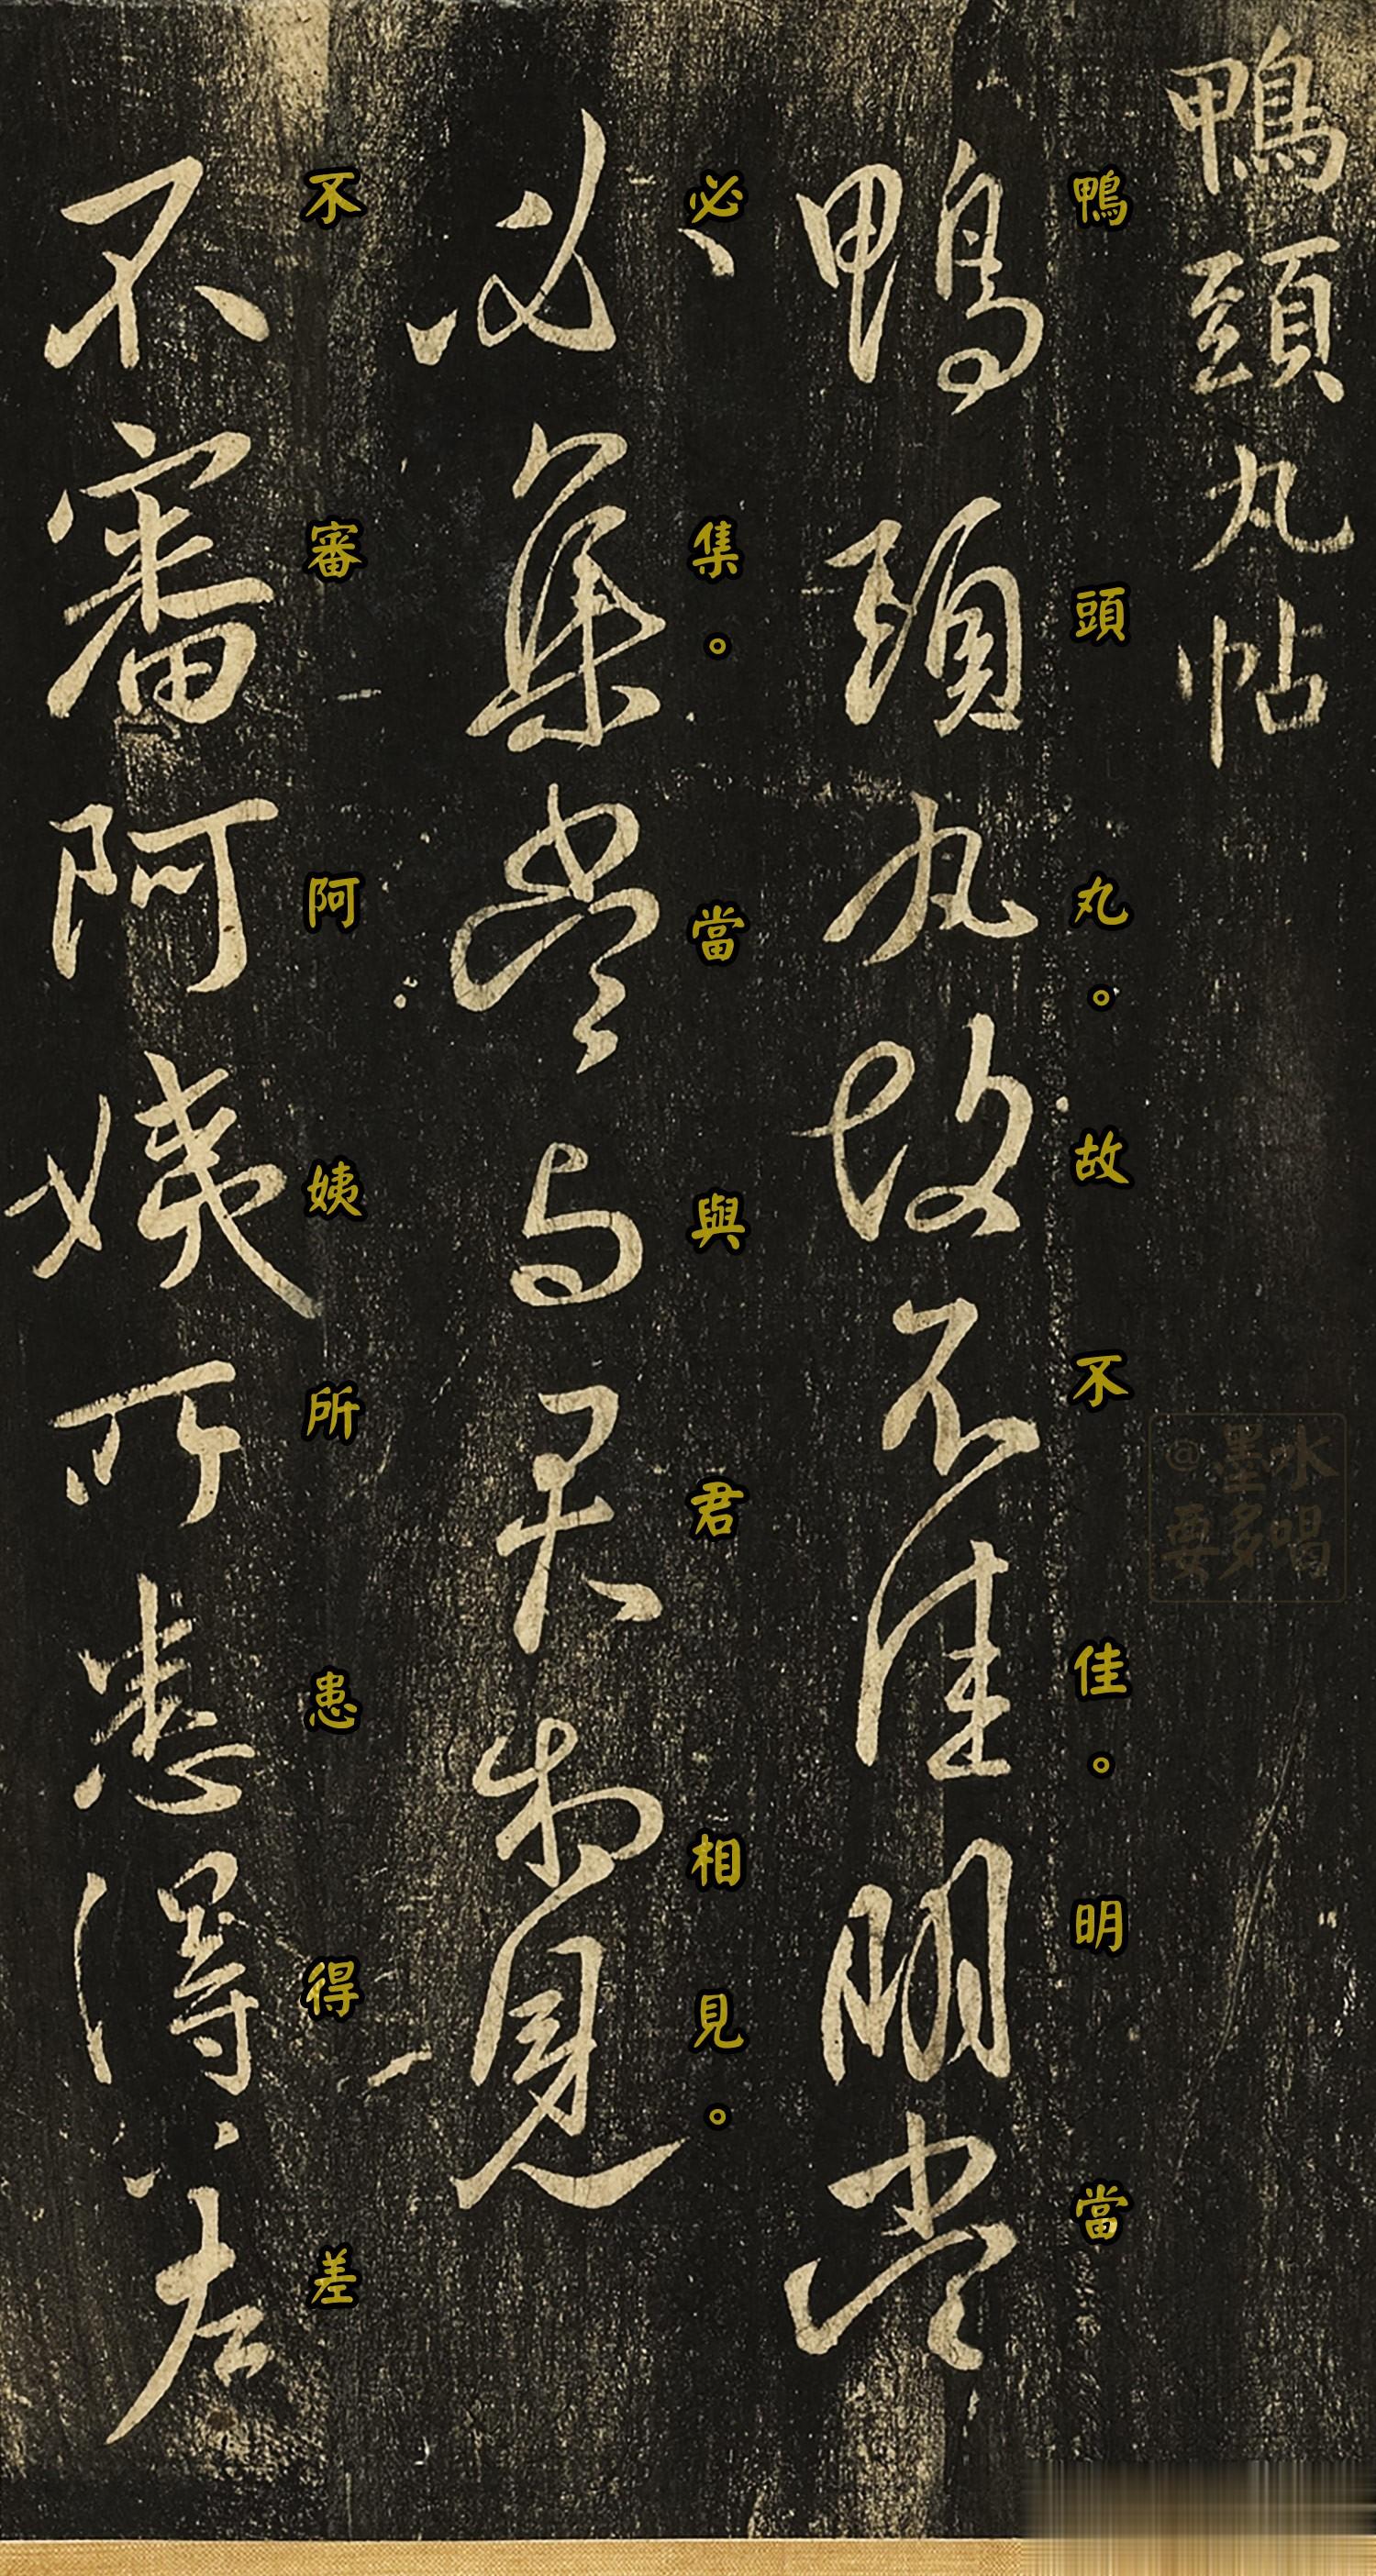 鴨頭丸帖
鴨頭丸故不佳明當
鴨頭丸。故不佳。明當
必集當与君相見
必集。當與君相見。
不審阿姨所患得差
不審阿姨所患得差
@墨水
要多唱